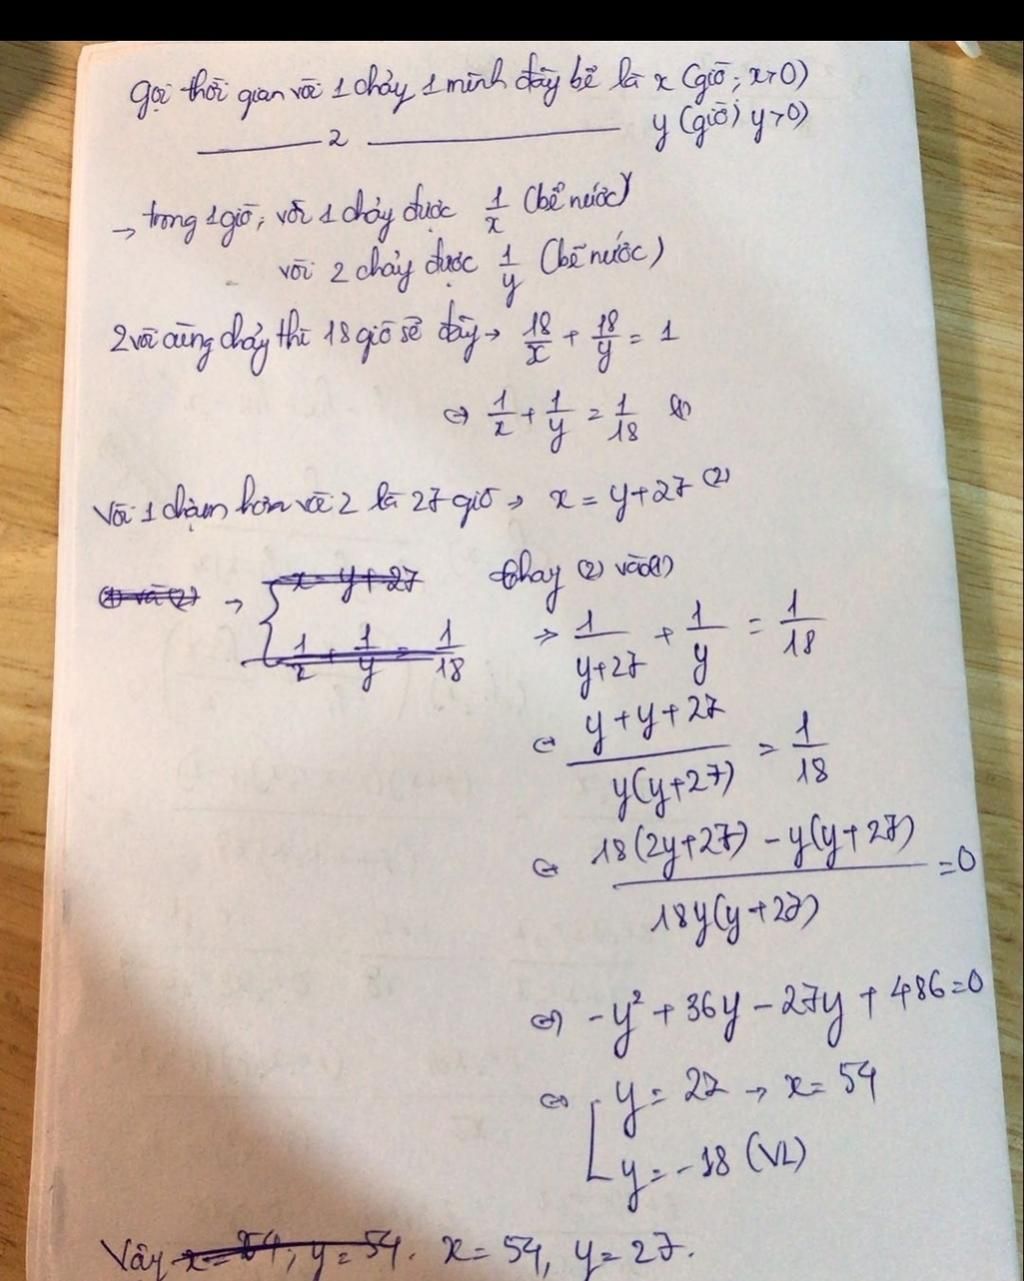 gọi thời gian vòi 1 chảy 1 mình đầy bể là x (giờ; x>0)
——— 2 ——————— y (giờ; y>0)
→ trong 1 giờ, vòi 1 chảy được 1/x (bể nước)
vòi 2 chảy được 1/y (bể nước)
2 vòi cùng chảy thì 18 giờ sẽ đầy → 18/x + 18/y = 1
⇔ 1/x + 1/y = 1/18 (1)
Vòi 1 chậm hơn vòi 2 là 27 giờ → x = y+27 (2)
(1) và (2) → { x = y+27
1/x + 1/y = 1/18
thay (2) vào (1)
⇒ 1/(y+27) + 1/y = 1/18
⇔ (y+y+27)/(y(y+27)) = 1/18
⇔ (18(2y+27) - y(y+27))/(18y(y+27)) = 0
⇔ -y² + 36y - 27y + 486 = 0
⇔ [ y = 27 → x = 54
y = -18 (VL)
Vậy x = 54, y = 54. x = 54, y = 27.